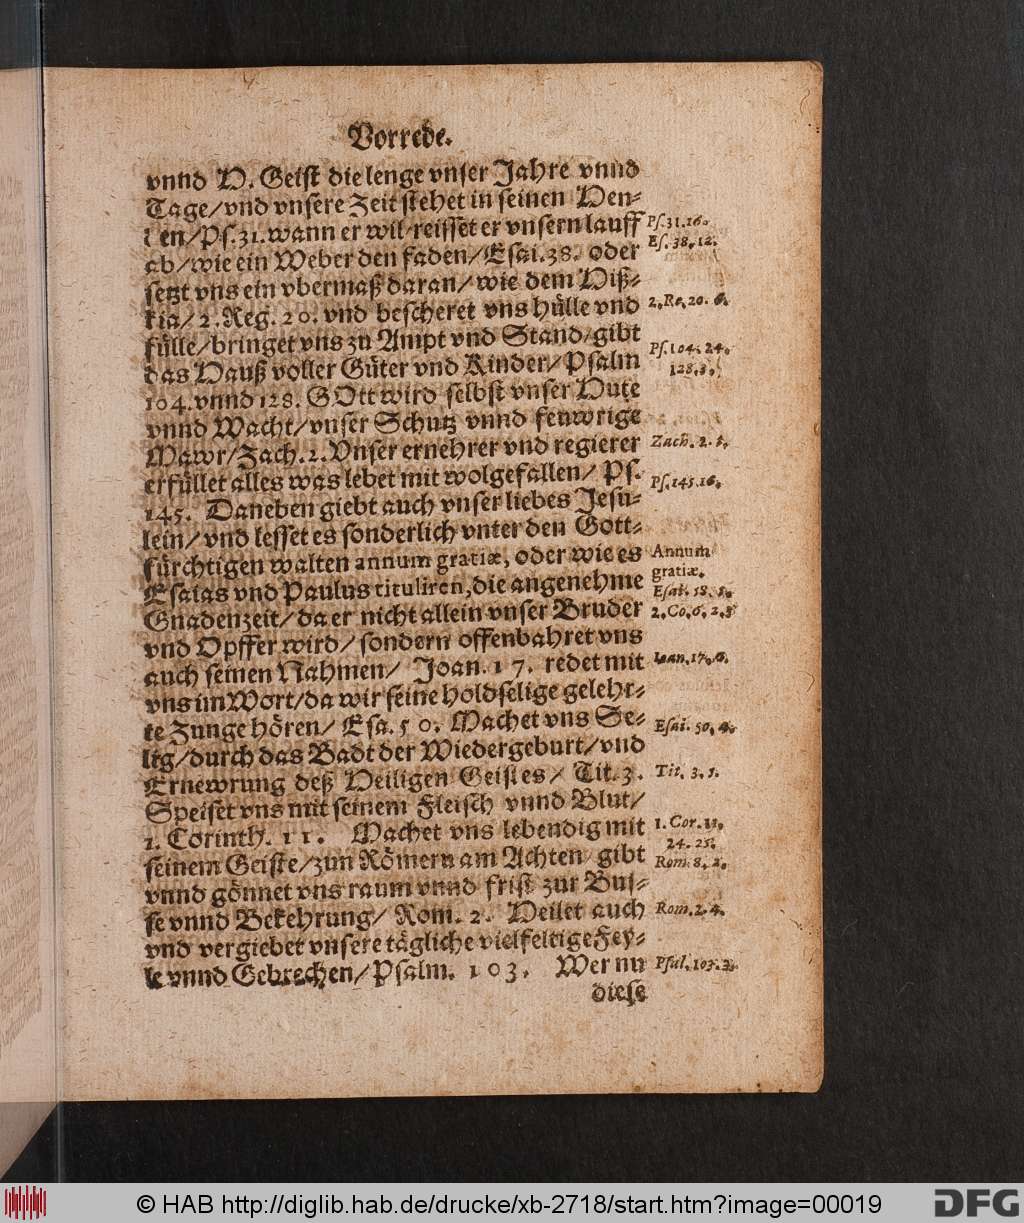 Vorrede.
vnnd H. Geist die lenge vnser Jahre vnnd
Tage/vnd vnsere Zeit stehet in seinen Hen-
den/Ps.31.wann er wil/reisset er vnsern lauff
Ps.31.16.
ab/wie ein Weber den faden/Esai.38. oder
Es. 38. 12.
setzt vns ein vbermaß daran/wie dem Hiß-
kia/2.Reg.20.vnd bescheret vns Hülle vnd
2. Re. 20. 6.
fülle/bringet vns zu Ampt vnd Stand/gibt
das Hauß voller Güter vnd Kinder/Psalm
Ps.104.24.
128.3.
104.vnnd 128. GOtt wird selbst vnser Hute
vnnd Wacht/vnser Schutz vnnd fewrige
Mawr/Zach.2.Vnser ernehrer vnd regierer
Zach. 2. 5.
erfüllet alles was lebet mit wolgefallen/ Ps.
Ps.145.16.
145. Daneben giebt auch vnser liebes Jesu-
lein/vnd lesset es sonderlich vnter den Gott-
fürchtigen walten annum gratiæ, oder wie es
Annum
gratiæ.
Esaias vnd Paulus tituliren,die angenehme
Esai.
Gnadenzeit/da er nicht allein vnser Bruder
2. Co. 6. 2.
vnd Opffer wird/sondern offenbahret vns
auch seinen Nahmen/ Joan.17. redet mit
Ioan.17.6.
vns im Wort/da wir seine holdselige gelehr-
te Zunge hören/ Esa.50. Machet vns Se-
Esai. 50. 4.
lig/durch das Badt der Wiedergeburt/vnd
Ernewrung deß Heiligen Geistes/ Tit.3.
Tit. 3. 5.
Speiset vns mit seinem Fleisch vnnd Blut/
1. Corinth. 11. Machet vns lebendig mit
1. Cor. 11.
24. 25.
seinem Geiste/zun Römern am Achten/gibt
Rom. 8. 2.
vnnd gönnet vns raum vnnd frist zur Bus-
se vnnd Bekehrung/ Rom. 2. Heilet auch
Rom. 2. 4.
vnd vergiebet vnsere tägliche vielfeltige Fey-
le vnnd Gebrechen/Psalm. 103. Wer nu
Psal. 103. 3.
diese
© HAB http://diglib.hab.de/drucke/xb-2718/start.htm?image=00019
DFG